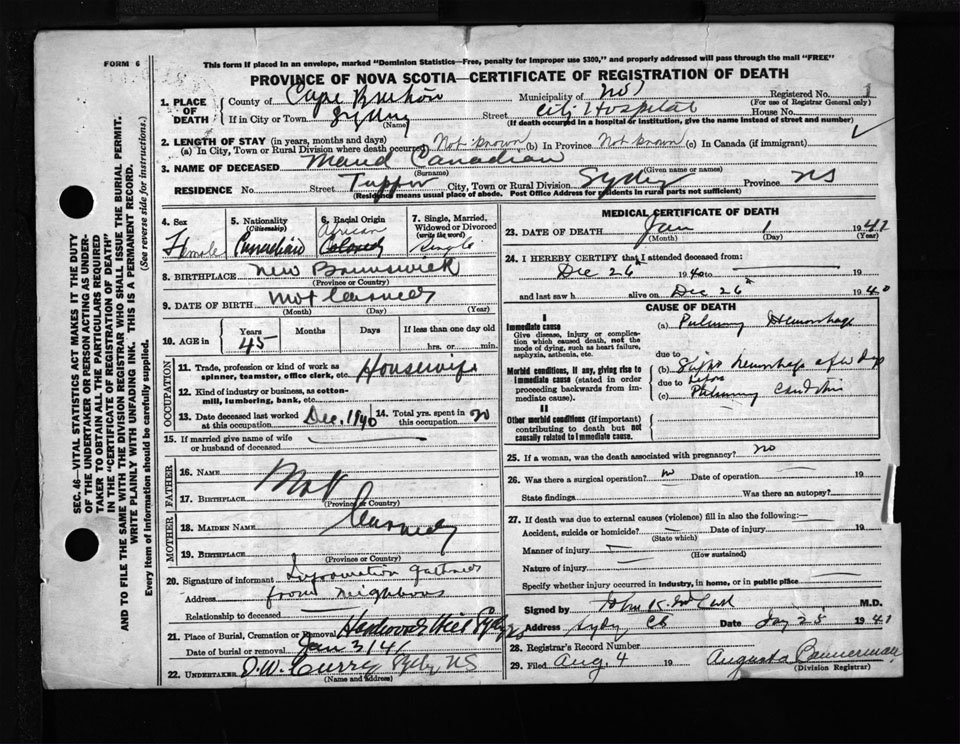 FORM 6
This form if placed in an envelope, marked "Dominion Statistics—Free, penalty for improper use $300," and properly addressed will pass through the mail "FREE"
PROVINCE OF NOVA SCOTIA—CERTIFICATE OF REGISTRATION OF DEATH
1. PLACE OF DEATH
County of Cape Breton Municipality of Registered No. 1
(For use of Registrar General only)
If in City or Town Sydney Street City Hospital House No.
(Name) (If death occurred in a hospital or institution, give the name instead of street and number)
2. LENGTH OF STAY (in years, months and days)
(a) In City, Town or Rural Division where death occurred Not known (b) In Province Not known (c) In Canada (if immigrant)
3. NAME OF DECEASED Maud Canadian
(Surname) (Given name or names)
RESIDENCE No. Street Tupper City, Town or Rural Division Sydney Province NS
(Residence means usual place of abode. Post Office Address for residents in rural parts not sufficient)
4. Sex Female
5. Nationality (Citizenship) Canadian
6. Racial Origin African Colored
7. Single, Married, Widowed or Divorced (write the word) Single
8. BIRTHPLACE New Brunswick
(Province or Country)
9. DATE OF BIRTH Not learned
(Month) (Day) (Year)
10. AGE in Years 45 Months Days If less than one day hrs. or min.
OCCUPATION
11. Trade, profession or kind of work as spinner, teamster, office clerk, etc. Housewife
12. Kind of industry or business, as cotton-mill, lumbering, bank, etc.
13. Date deceased last worked at this occupation Dec. 1940 14. Total yrs. spent in this occupation 20
15. If married give name of wife or husband of deceased
FATHER
16. Name Not
17. Birthplace
(Province or Country)
MOTHER
18. Maiden Name learned
19. Birthplace
(Province or Country)
20. Signature of informant Information gathered
Address from neighbours
Relationship to deceased
21. Place of Burial, Cremation or Removal Hardwood Hill Sydney NS
Date of burial or removal Jan 3/41
22. Undertaker D.W. Curry Sydney NS
(Name and address)
MEDICAL CERTIFICATE OF DEATH
23. DATE OF DEATH Jan 1 1941
(Month) (Day) (Year)
24. I HEREBY CERTIFY that I attended deceased from:
Dec 26 1940 to 19
and last saw h alive on Dec 26 1940
CAUSE OF DEATH
I
Immediate cause
Give disease, injury or complication which caused death, not the mode of dying, such as heart failure, asphyxia, asthenia, etc.
(a) Pulmonary Hemorrhage
due to
Morbid conditions, if any, giving rise to immediate cause (stated in order proceeding backwards from immediate cause).
(b) hemorrhage
due to before
(c) Pulmonary
II
Other morbid conditions (if important) contributing to death but not causally related to immediate cause.
25. If a woman, was the death associated with pregnancy? no
26. Was there a surgical operation? no Date of operation 19
State findings Was there an autopsy?
27. If death was due to external causes (violence) fill in also the following:—
Accident, suicide or homicide? Date of injury 19
(State which)
Manner of injury
(How sustained)
Nature of injury
Specify whether injury occurred in industry, in home, or in public place
Signed by John K. M.D.
Address Sydney CB Date 1941
28. Registrar's Record Number
29. Filed Aug. 4 19 Augusta Bannerman
(Division Registrar)
SEC. 46—VITAL STATISTICS ACT MAKES IT THE DUTY
OF THE UNDERTAKER OR PERSON ACTING AS UNDER-
TAKER TO OBTAIN ALL THE PARTICULARS REQUIRED
IN THE "CERTIFICATE OF REGISTRATION OF DEATH"
AND TO FILE THE SAME WITH THE DIVISION REGISTRAR WHO SHALL ISSUE THE BURIAL PERMIT.
WRITE PLAINLY WITH UNFADING INK. THIS IS A PERMANENT RECORD.
Every item of information should be carefully supplied. (See reverse side for instructions.)